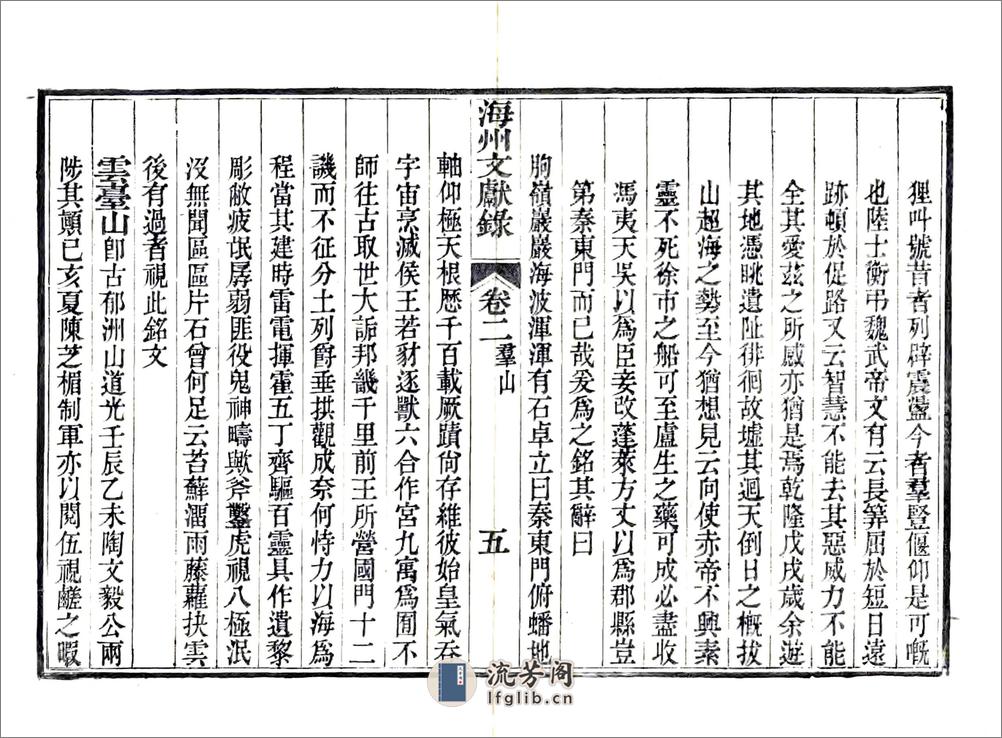 狸叫號昔者列辟震盪今者羣豎偃仰是可嘅
也陸士衡弔魏武帝文有云長筭屈於短日遠
跡頓於促路又云智慧不能去其惡威力不能
全其愛茲之所感亦猶是焉乾隆戊戌歲余遊
其地憑眺遺阯徘徊故墟其迴天倒日之概拔
山超海之勢至今猶想見云向使赤帝不興素
靈不死徐市之船可至盧生之藥可成必盡收
馮夷天吳以爲臣妾改蓬萊方丈以爲郡縣豈
第秦東門而已哉爰爲之銘其辭曰
朐嶺巖巖海波渾渾有石卓立曰秦東門俯蟠地
海州文獻錄
卷二 羣山
五
軸仰極天根歷千百載厥蹟尙存維彼始皇氣吞
宇宙烹滅侯王若豺逐獸六合作宮九寓爲囿不
師往古取世大詬邦畿千里前王所營國門十二
譏而不征分土列爵垂拱觀成奈何恃力以海爲
程當其建時雷電揮霍五丁齊驅百靈具作遺黎
彫敝疲氓孱弱匪役鬼神疇歟斧鑿虎視八極泯
沒無聞區區片石曾何足云苔蘚溜雨藤蘿抉雲
後有過者視此銘文
雲臺山卽古郁洲山道光壬辰乙未陶文毅公兩
陟其顚己亥夏陳芝楣制軍亦以閱伍視鹺之暇
流芳阁
lfglib.cn